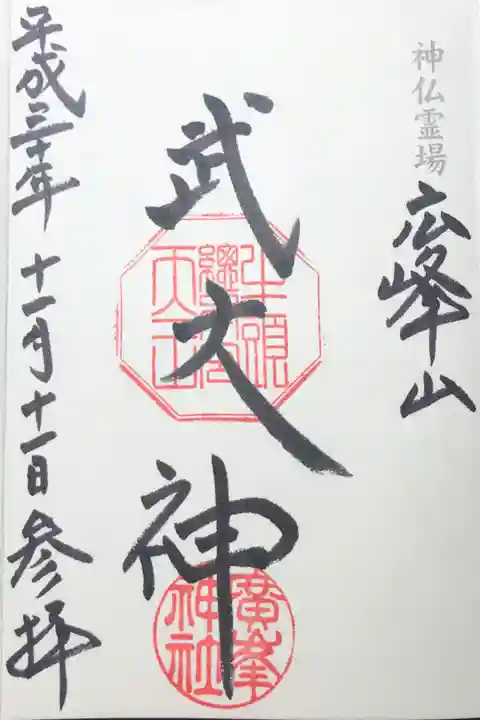 神仏霊場
広峰山
武大神
廣峯
神社
平成三十年 十一月十一日 参拝